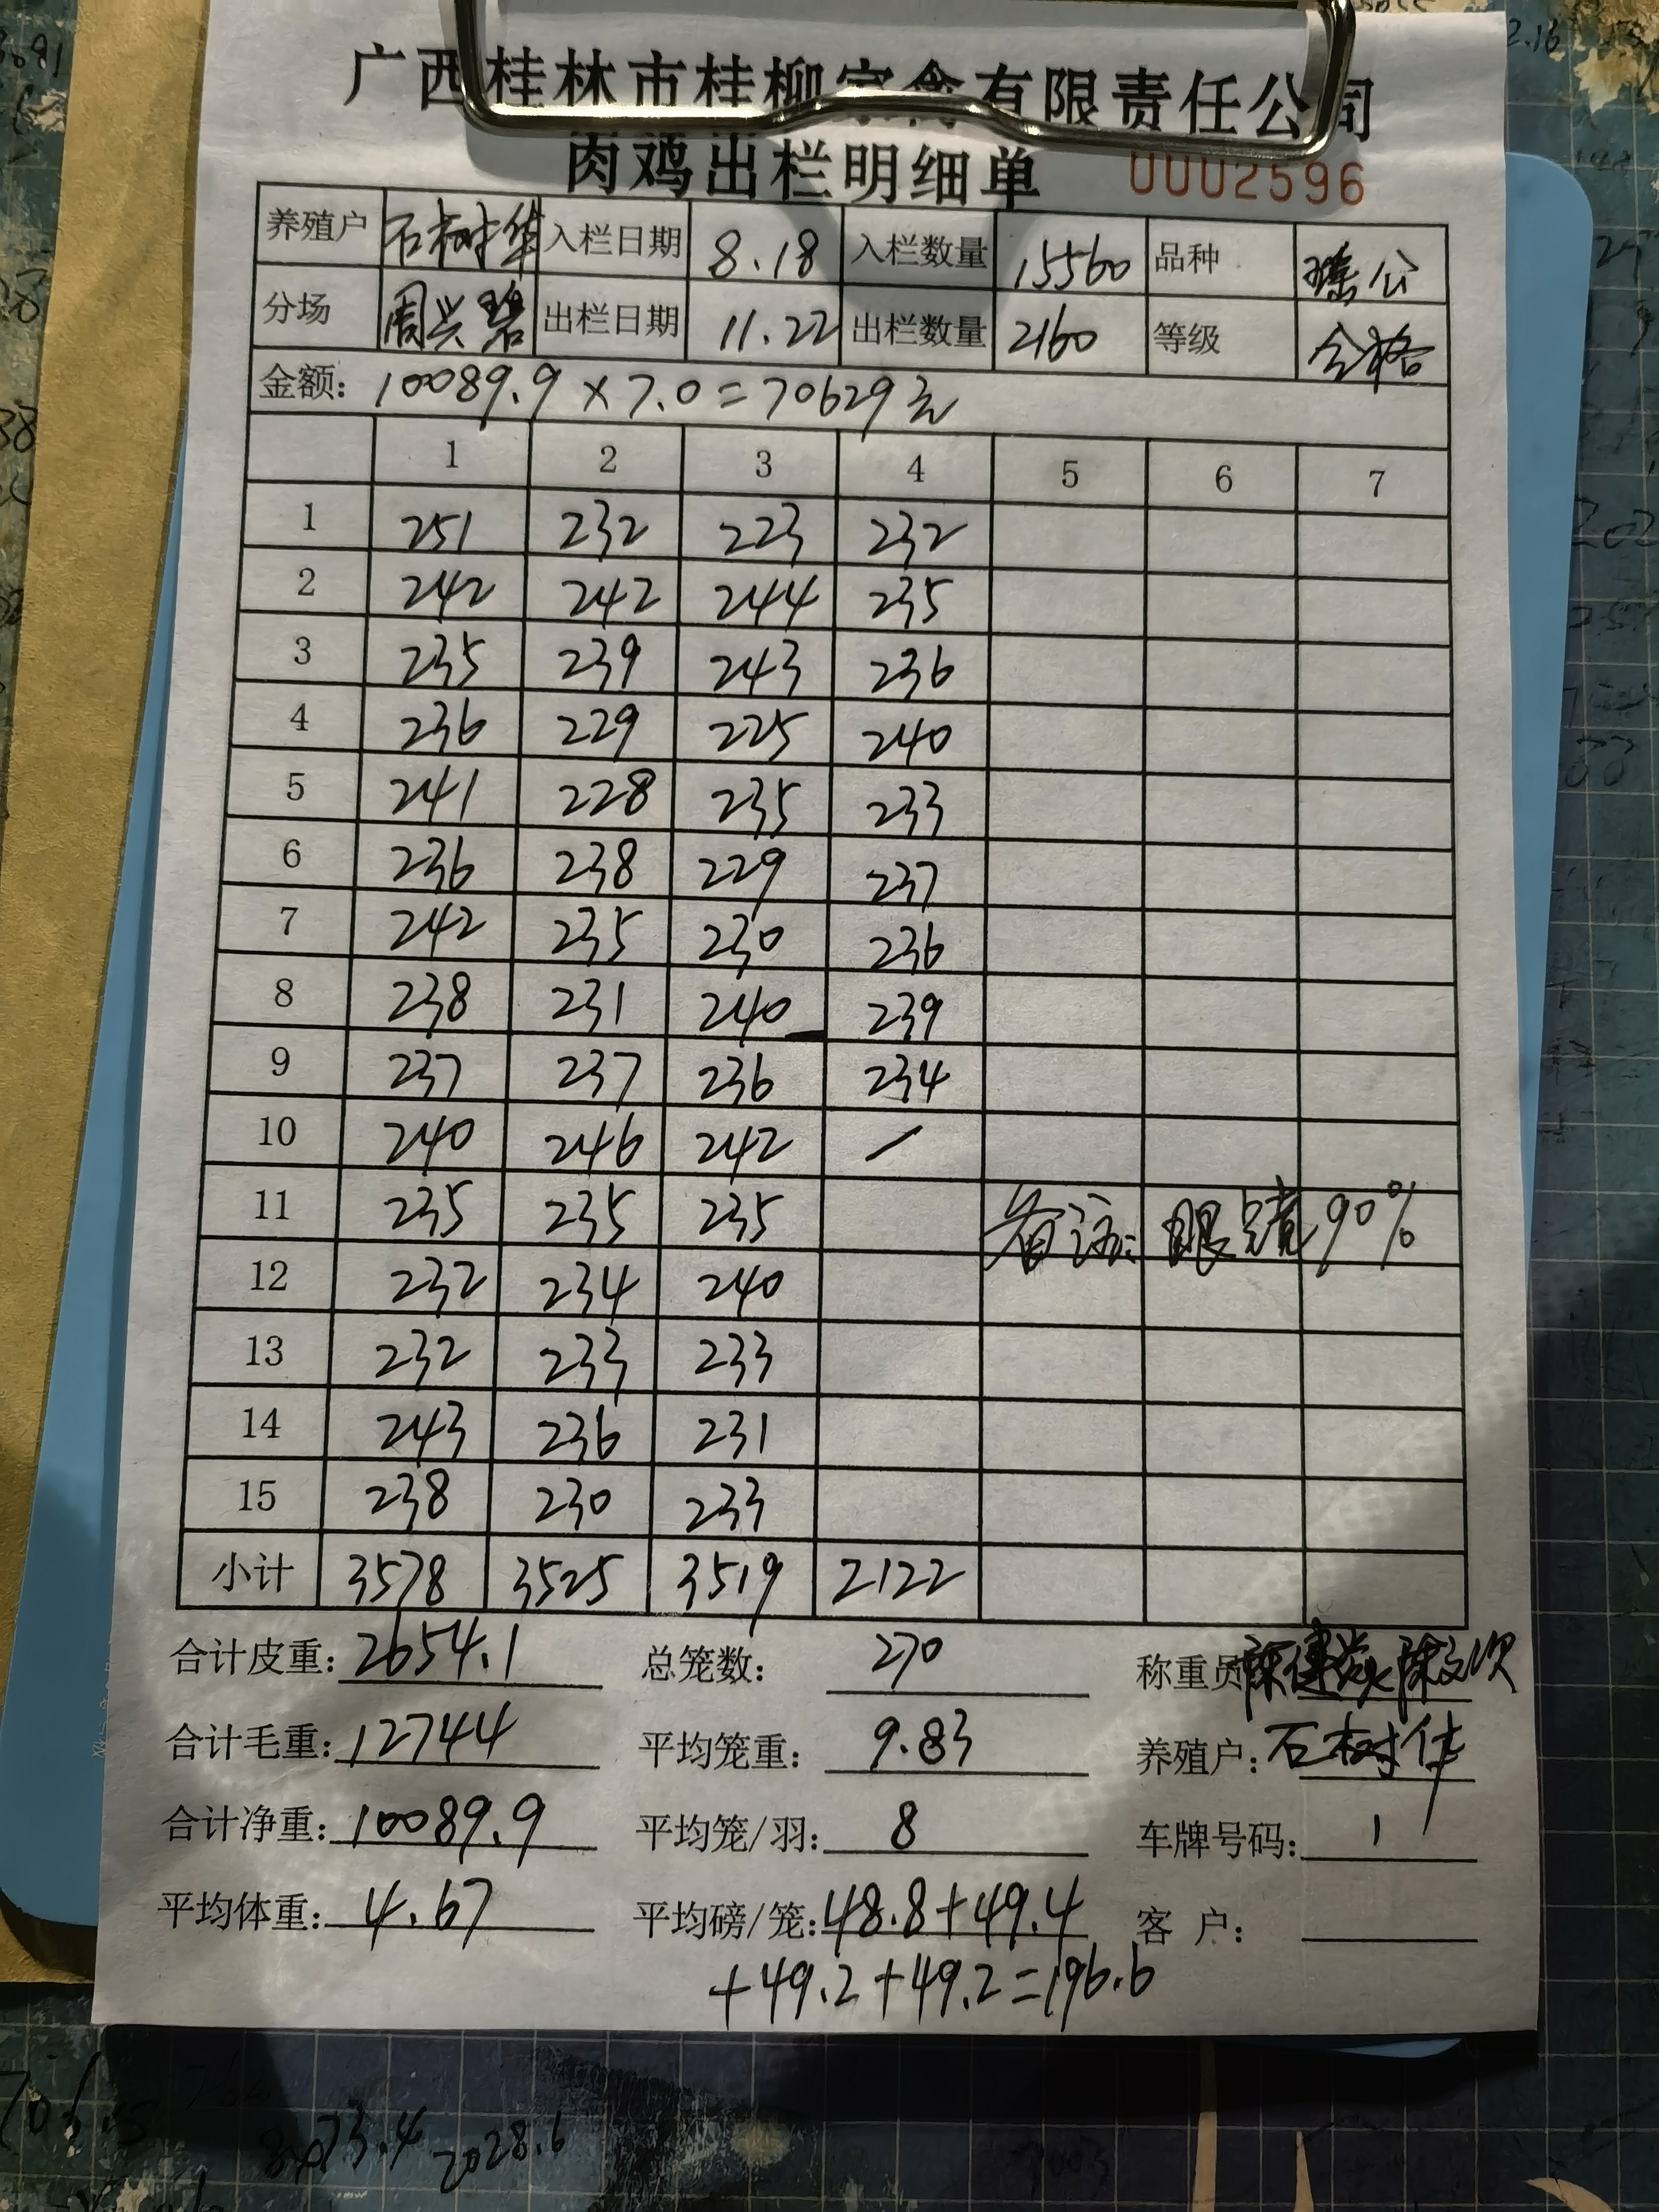 广西桂林市桂柳家禽有限责任公司
肉鸡出栏明细单 0002596
养殖户 石树华 入栏日期 8.18 入栏数量 15560 品种 瑤公
分场 周兴碧 出栏日期 11.22 出栏数量 2160 等级 合格
金额: 10089.9 × 7.0 = 70629元
1 2 3 4 5 6 7
1 251 232 223 232
2 242 242 244 235
3 235 239 243 236
4 236 229 225 240
5 241 228 235 233
6 236 238 229 237
7 242 235 230 236
8 238 231 240 239
9 237 237 236 234
10 240 246 242 /
11 235 235 235 备注: 眼睛90%
12 232 234 240
13 232 233 233
14 243 236 231
15 238 230 233
小计 3578 3525 3519 2122
合计皮重: 2654.1 总笼数: 270 称重员
合计毛重: 12744 平均笼重: 9.83 养殖户: 石树华
合计净重: 10089.9 平均笼/羽: 8 车牌号码: 1
平均体重: 4.67 平均磅/笼: 48.8+49.4 客户:
+49.2+49.2=196.6
8073.4 2028.6